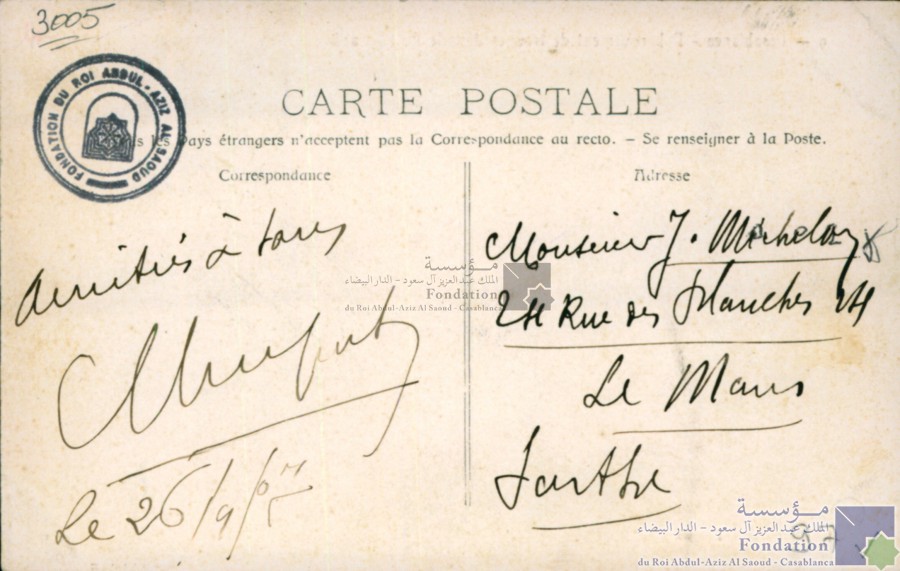 3005
FONDATION DU ROI ABDUL-AZIZ AL SAOUD
CARTE POSTALE
les Pays étrangers n'acceptent pas la Correspondance au recto. – Se renseigner à la Poste.
Correspondance
Amitiés à tous
Le 26/9/07
Adresse
Monsieur J. Micheloy
24 Rue des Planches 24
Le Mans
Sarthe
مؤسسة
الملك عبد العزيز آل سعود - الدار البيضاء
Fondation
du Roi Abdul-Aziz Al Saoud - Casablanca
مؤسسة
الملك عبد العزيز آل سعود - الدار البيضاء
Fondation
du Roi Abdul-Aziz Al Saoud - Casablanca